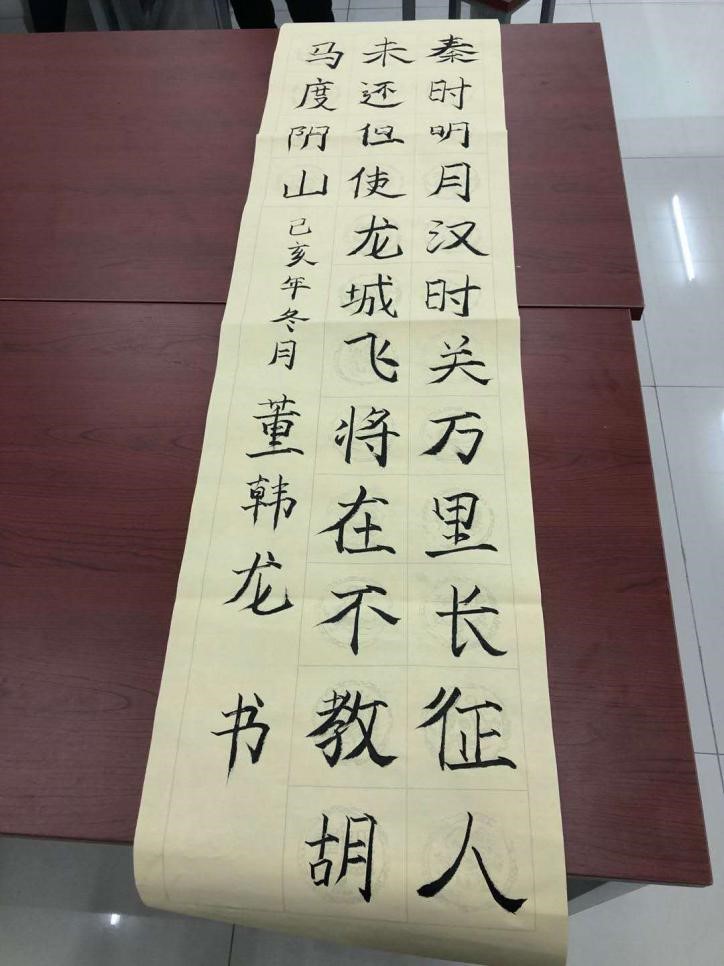 秦时明月汉时关万里长征人
未还但使龙城飞将在不教胡
马度阴山己亥年冬月董韩龙书